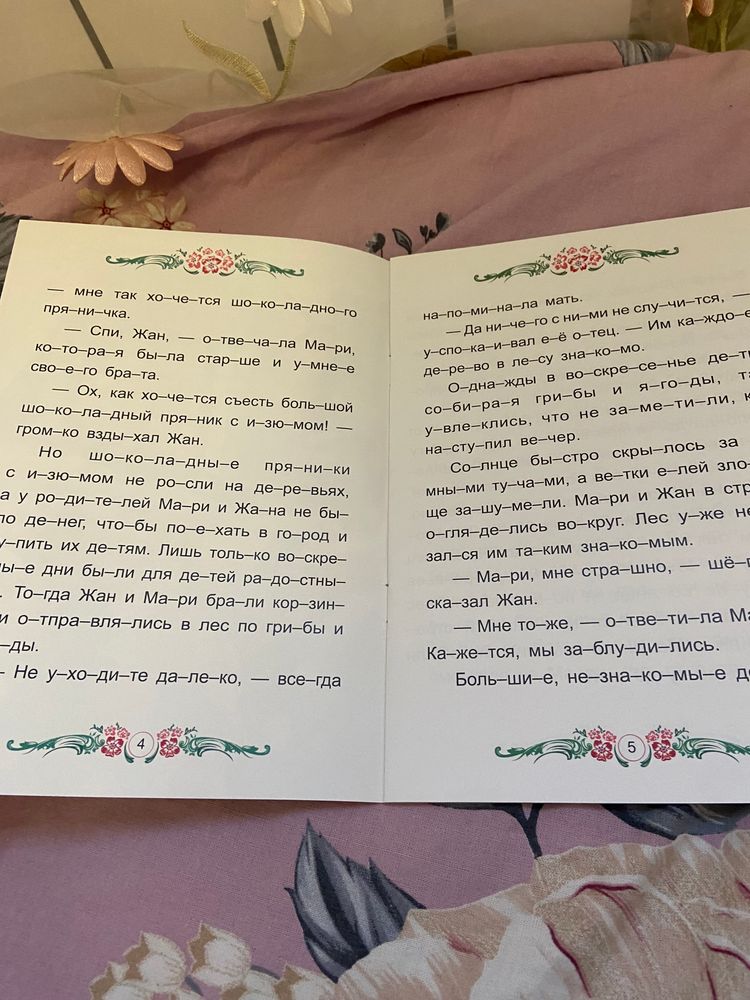 — мне так хо–че–тся шо–ко–ла–дно–го
пря–ни–чка.
— Спи, Жан, — о–тве–ча–ла Ма–ри,
ко–то–ра–я бы–ла стар–ше и у–мне–е
сво–е–го бра–та.
— Ох, как хо–че–тся съесть боль–шой
шо–ко–ла–дный пря–ник с и–зю–мом! —
гром–ко взды–хал Жан.
Но шо–ко–ла–дны–е пря–ни–ки
с и–зю–мом не ро–сли на де–ре–вьях,
а у ро–ди–те–лей Ма–ри и Жа–на не бы–
ло де–нег, что–бы по–е–хать в го–род и
у–пить их де–тям. Лишь толь–ко во–скре–
ы–е дни бы–ли для де–тей ра–до–стны–
. То–гда Жан и Ма–ри бра–ли кор–зин–
и о–тпра–вля–лись в лес по гри–бы и
–ды.
– Не у–хо–ди–те да–ле–ко, — все–гда
4
на–по–ми–на–ла мать.
— Да ни–че–го с ни–ми не слу–чи–тся, —
у–спо–ка–и–вал е–ё о–тец. — Им ка–ждо–е
де–ре–во в ле–су зна–ко–мо.
О–дна–жды в во–скре–се–нье де–т
со–би–ра–я гри–бы и я–го–ды, та
у–вле–клись, что не за–ме–ти–ли, к
на–сту–пил ве–чер.
Со–лнце бы–стро скры–лось за
мны–ми ту–ча–ми, а ве–тки е–лей зло–
ще за–шу–ме–ли. Ма–ри и Жан в стр
о–гля–де–лись во–круг. Лес у–же не
зал–ся им та–ким зна–ко–мым.
— Ма–ри, мне стра–шно, — шё–п
ска–зал Жан.
— Мне то–же, — о–тве–ти–ла Ма
Ка–же–тся, мы за–блу–ди–лись.
Боль–ши–е, не–зна–ко–мы–е де
5